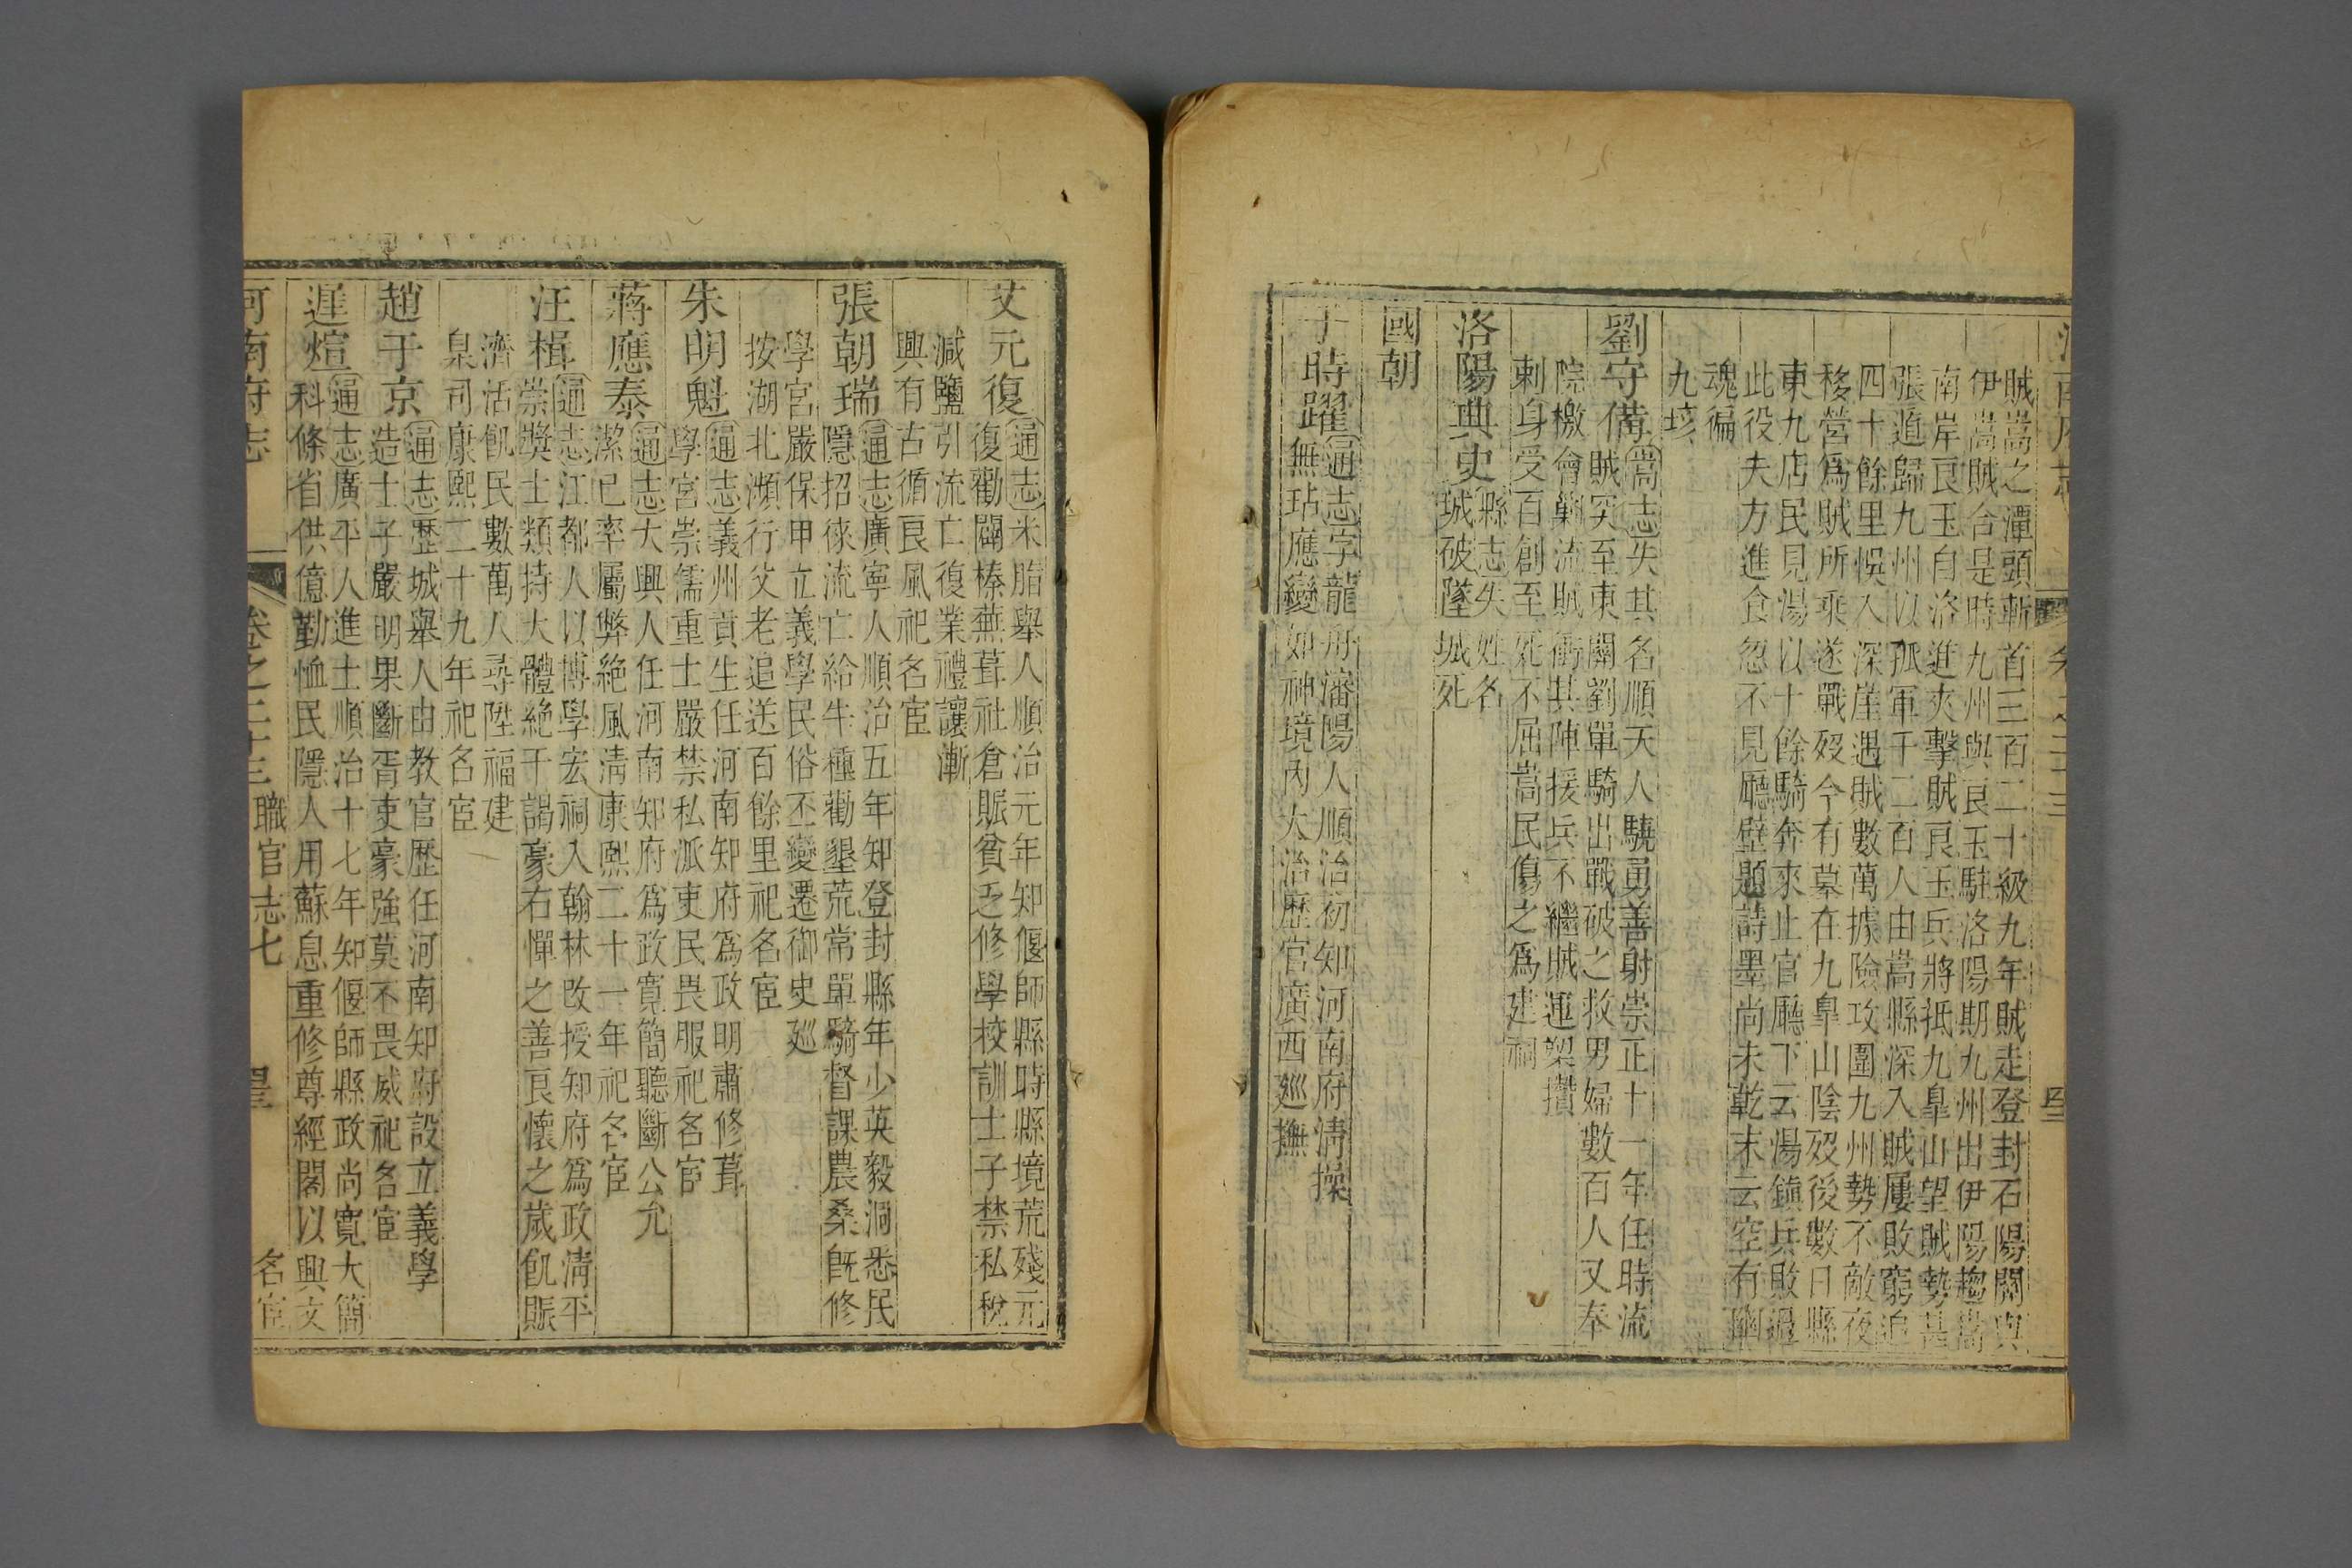 賊嵩之潭頭斬首三百二十級九年賊走登封石陽關與
伊嵩賊合是時九州與良玉駐洛陽期九州出伊陽趨嵩
南岸良玉自洛進夾擊賊良玉兵將抵九臯山望賊勢甚
張遁歸九州以孤軍千二百人由嵩縣深入賊屢敗窮追
四十餘里悞入深崖遇賊數萬據險攻圍九州勢不敵夜
移營爲賊所乘遂戰歿今有墓在九臯山陰歿後數日縣
東九店民見湯以十餘騎奔來止官廳下云湯鎮兵敗過
此役夫方進食忽不見廳壁題詩墨尚未乾末云空有幽
魂徧
九垓
劉守備
嵩志失其名順天人驍勇善射崇正十一年任時流
賊突至東關劉單騎出戰破之救男婦數百人又奉
院檄會勦流賊衝其陣援兵不繼賊運槊攢
刺身受百創至死不屈嵩民傷之爲建祠
洛陽典史
縣志失姓名
城破墜城死
國朝
于時躍
通志字龍舟瀋陽人順治初知河南府淸操
無玷應變如神境內大治歷官廣西廵撫
艾元復
通志米脂舉人順治元年知偃師縣時縣境荒殘元
復勸闢榛蕪葺社倉賑貧乏修學校訓士子禁私稅
減鹽引流亡復業禮讓漸
興有古循良風祀名宦
張朝瑞
通志廣寧人順治五年知登封縣年少英毅洞悉民
隱招徠流亡給牛種勸墾荒常單騎督課農桑旣修
學宮嚴保甲立義學民俗丕變遷御史廵
按湖北瀕行父老追送百餘里祀名宦
朱明魁
通志義州貢生任河南知府爲政明肅修葺
學宮崇儒重士嚴禁私派吏民畏服祀名宦
蔣應泰
通志大興人任河南知府爲政寬簡聽斷公允
潔已率屬弊絶風淸康熙二十一年祀名宦
汪楫
通志江都人以博學宏詞入翰林改授知府爲政淸平
崇獎士類持大體絶干謁豪右憚之善良懷之歲飢賑
濟活飢民數萬人尋陞福建
臬司康熙二十九年祀名宦
趙于京
通志歷城舉人由教官歷任河南知府設立義學
造士子嚴明果斷胥吏豪強莫不畏威祀名宦
遲煊
通志廣平人進士順治十七年知偃師縣政尚寬大簡
科條省供億勤恤民隱人用蘇息重修尊經閣以興文
河南府志
卷之三十三
職官志七
名宦